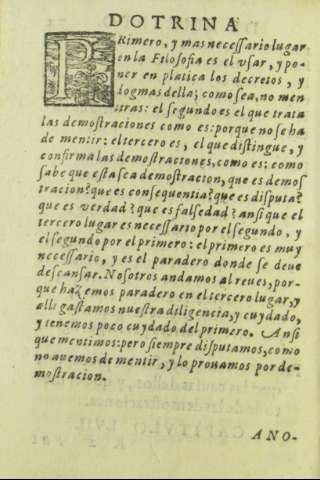 DOTRINA
PRimero, y mas necessario lugar
en la Filosofia es el vsar, y po-
ner en platica los decretos, y
dogmas della; como sea, no men
tras: el segundo es el que trata
las demostraciones como es: porque no se ha
de mentir: el tercero es, el que distingue, y
confirma las demostraciones, como es: como
sabe que esta sea demostracion, que es demos
tracion? que es consequentia? que es disputa?
que es verdad? que es falsedad? ansi que el
tercero lugar es necessario por el segundo, y
el segundo por el primero: el primero es muy
necessario, y es el paradero donde se deue
descansar. Nosotros andamos al reues, por-
que hazemos paradero en el tercero lugar, y
alli gastamos nuestra diligencia, y cuydado,
y tenemos poco cuydado del primero. Ansi
que mentimos: pero siempre disputamos, como
no auemos de mentir, y lo prouamos por de-
mostracion.
ANO-